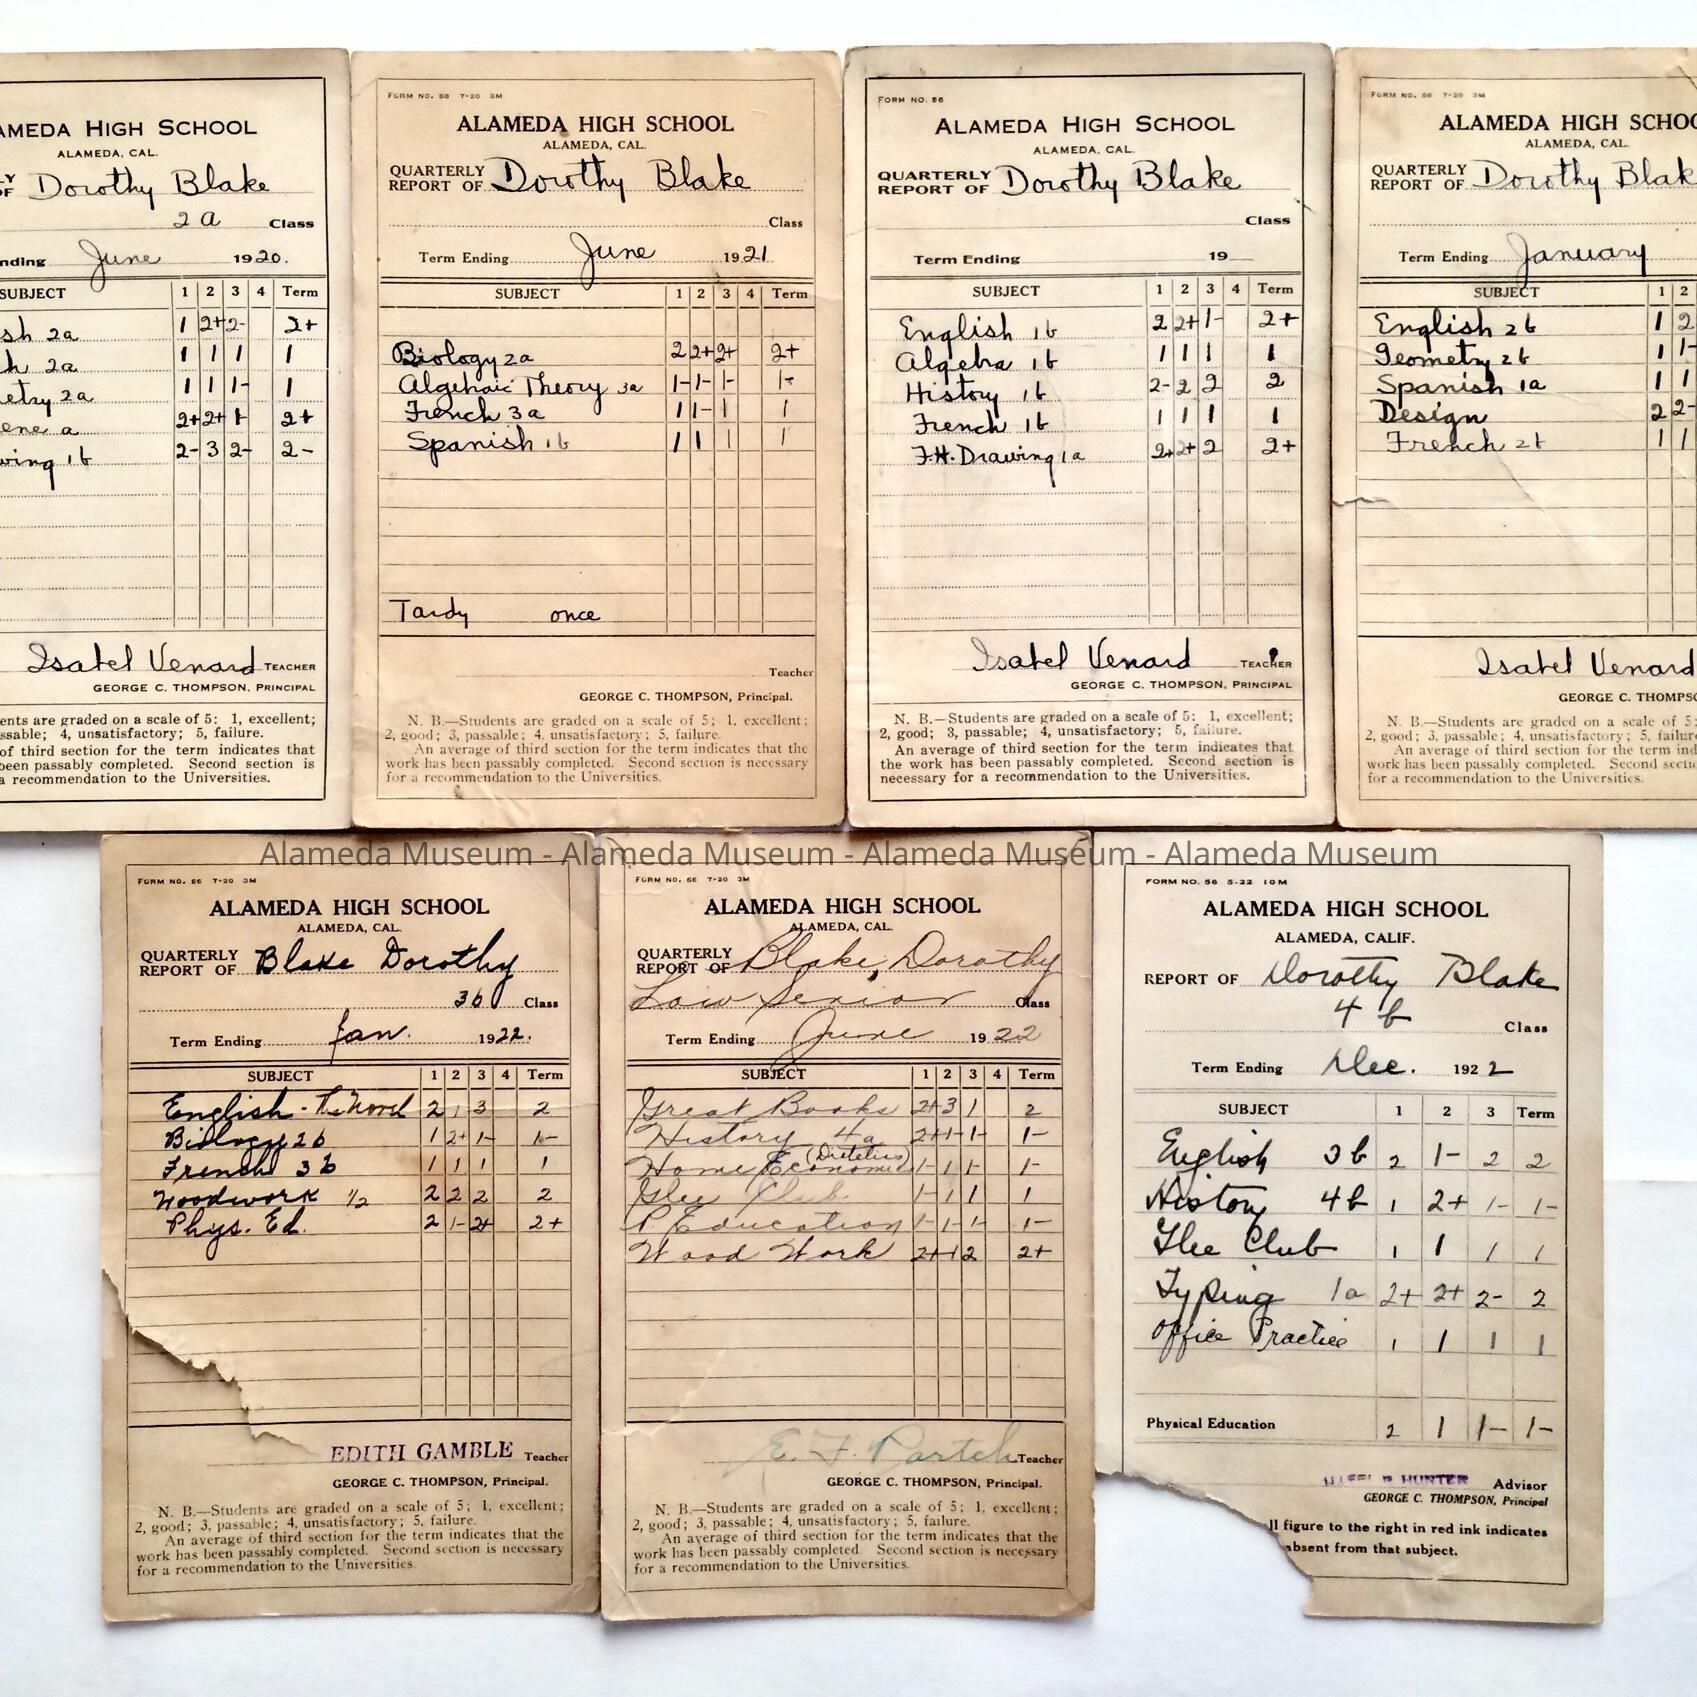 AMEDA HIGH SCHOOL
ALAMEDA, CAL.
Y
OF Dorothy Blake
2a Class
nding June 1920.
SUBJECT 1 2 3 4 Term
sh 2a 1 2+ 2- 2+
h 2a 1 1 1 1
etry 2a 1 1 1- 1
ene a 2+ 2+ 1- 2+
wing 1b 2- 3 2- 2-
Isabel Venard TEACHER
GEORGE C. THOMPSON, PRINCIPAL
ents are graded on a scale of 5: 1, excellent;
ssable; 4, unsatisfactory; 5, failure.
of third section for the term indicates that
been passably completed. Second section is
a recommendation to the Universities.
FORM NO. 56 7-20 3M
ALAMEDA HIGH SCHOOL
ALAMEDA, CAL.
QUARTERLY
REPORT OF Dorothy Blake
Class
Term Ending June 1921
SUBJECT 1 2 3 4 Term
Biology 2a 2 2+ 2+ 2+
Algebraic Theory 3a 1- 1- 1- 1-
French 3a 1 1- 1 1
Spanish 1b 1 1 1 1
Tardy once
Teacher
GEORGE C. THOMPSON, Principal.
N. B.—Students are graded on a scale of 5; 1, excellent;
2, good; 3, passable; 4, unsatisfactory; 5, failure.
An average of third section for the term indicates that the
work has been passably completed. Second section is necessary
for a recommendation to the Universities.
FORM NO. 56
ALAMEDA HIGH SCHOOL
ALAMEDA, CAL.
QUARTERLY
REPORT OF Dorothy Blake
Class
Term Ending 19
SUBJECT 1 2 3 4 Term
English 1b 2 2+ 1- 2+
Algebra 1b 1 1 1 1
History 1b 2- 2 2 2
French 1b 1 1 1 1
F.H. Drawing 1a 2+ 2+ 2 2+
Isabel Venard TEACHER
GEORGE C. THOMPSON, PRINCIPAL
N. B.—Students are graded on a scale of 5: 1, excellent;
2, good; 3, passable; 4, unsatisfactory; 5, failure.
An average of third section for the term indicates that
the work has been passably completed. Second section is
necessary for a recommendation to the Universities.
FORM NO. 56 7-20 3M
ALAMEDA HIGH SCHOO
ALAMEDA, CAL.
QUARTERLY
REPORT OF Dorothy Blak
Term Ending January
SUBJECT 1 2
English 2b 1 2
Geometry 2b 1 1-
Spanish 1a 1 1
Design 2 2-
French 2b 1 1
Isabel Venard
GEORGE C. THOMPSO
N. B.—Students are graded on a scale of 5;
2, good; 3, passable; 4, unsatisfactory; 5, failure
An average of third section for the term ind
work has been passably completed. Second secti
for a recommendation to the Universities.
Alameda Museum - Alameda Museum - Alameda Museum - Alameda Museum
FORM NO. 56 7-20 3M
ALAMEDA HIGH SCHOOL
ALAMEDA, CAL.
QUARTERLY
REPORT OF Blake Dorothy
3b Class
Term Ending Jan. 1922.
SUBJECT 1 2 3 4 Term
English - The Novel 2 1 3 2
Biology 2b 1 2+ 1- 1-
French 3b 1 1 1 1
Woodwork 1/2 2 2 2 2
Phys. Ed. 2 1- 2+ 2+
EDITH GAMBLE Teacher
GEORGE C. THOMPSON, Principal.
N. B.—Students are graded on a scale of 5; 1, excellent;
2, good; 3, passable; 4, unsatisfactory; 5, failure.
An average of third section for the term indicates that the
work has been passably completed. Second section is necessary
for a recommendation to the Universities.
FORM NO. 56 7-20 3M
ALAMEDA HIGH SCHOOL
ALAMEDA, CAL.
QUARTERLY
REPORT OF Blake, Dorothy
Low Senior Class
Term Ending June 1922
SUBJECT 1 2 3 4 Term
Great Books 2+ 3 1 2
History 4a 2+ 1- 1- 1-
Home Economics (Dietetics) 1- 1 1- 1-
Glee Club 1- 1 1 1
P. Education 1- 1- 1- 1-
Wood Work 2+ 1 2 2+
E. F. Partch Teacher
GEORGE C. THOMPSON, Principal.
N. B.—Students are graded on a scale of 5; 1, excellent;
2, good; 3, passable; 4, unsatisfactory; 5, failure.
An average of third section for the term indicates that the
work has been passably completed. Second section is necessary
for a recommendation to the Universities.
FORM NO. 56 5-22 10M
ALAMEDA HIGH SCHOOL
ALAMEDA, CALIF.
REPORT OF Dorothy Blake
4b Class
Term Ending Dec. 1922
SUBJECT 1 2 3 Term
English 3b 2 1- 2 2
History 4b 1 2+ 1- 1-
Glee Club 1 1 1 1
Typing 1a 2+ 2+ 2- 2
Office Practice 1 1 1 1
Physical Education 2 1 1- 1-
HUNTER Advisor
GEORGE C. THOMPSON, Principal
ll figure to the right in red ink indicates
absent from that subject.